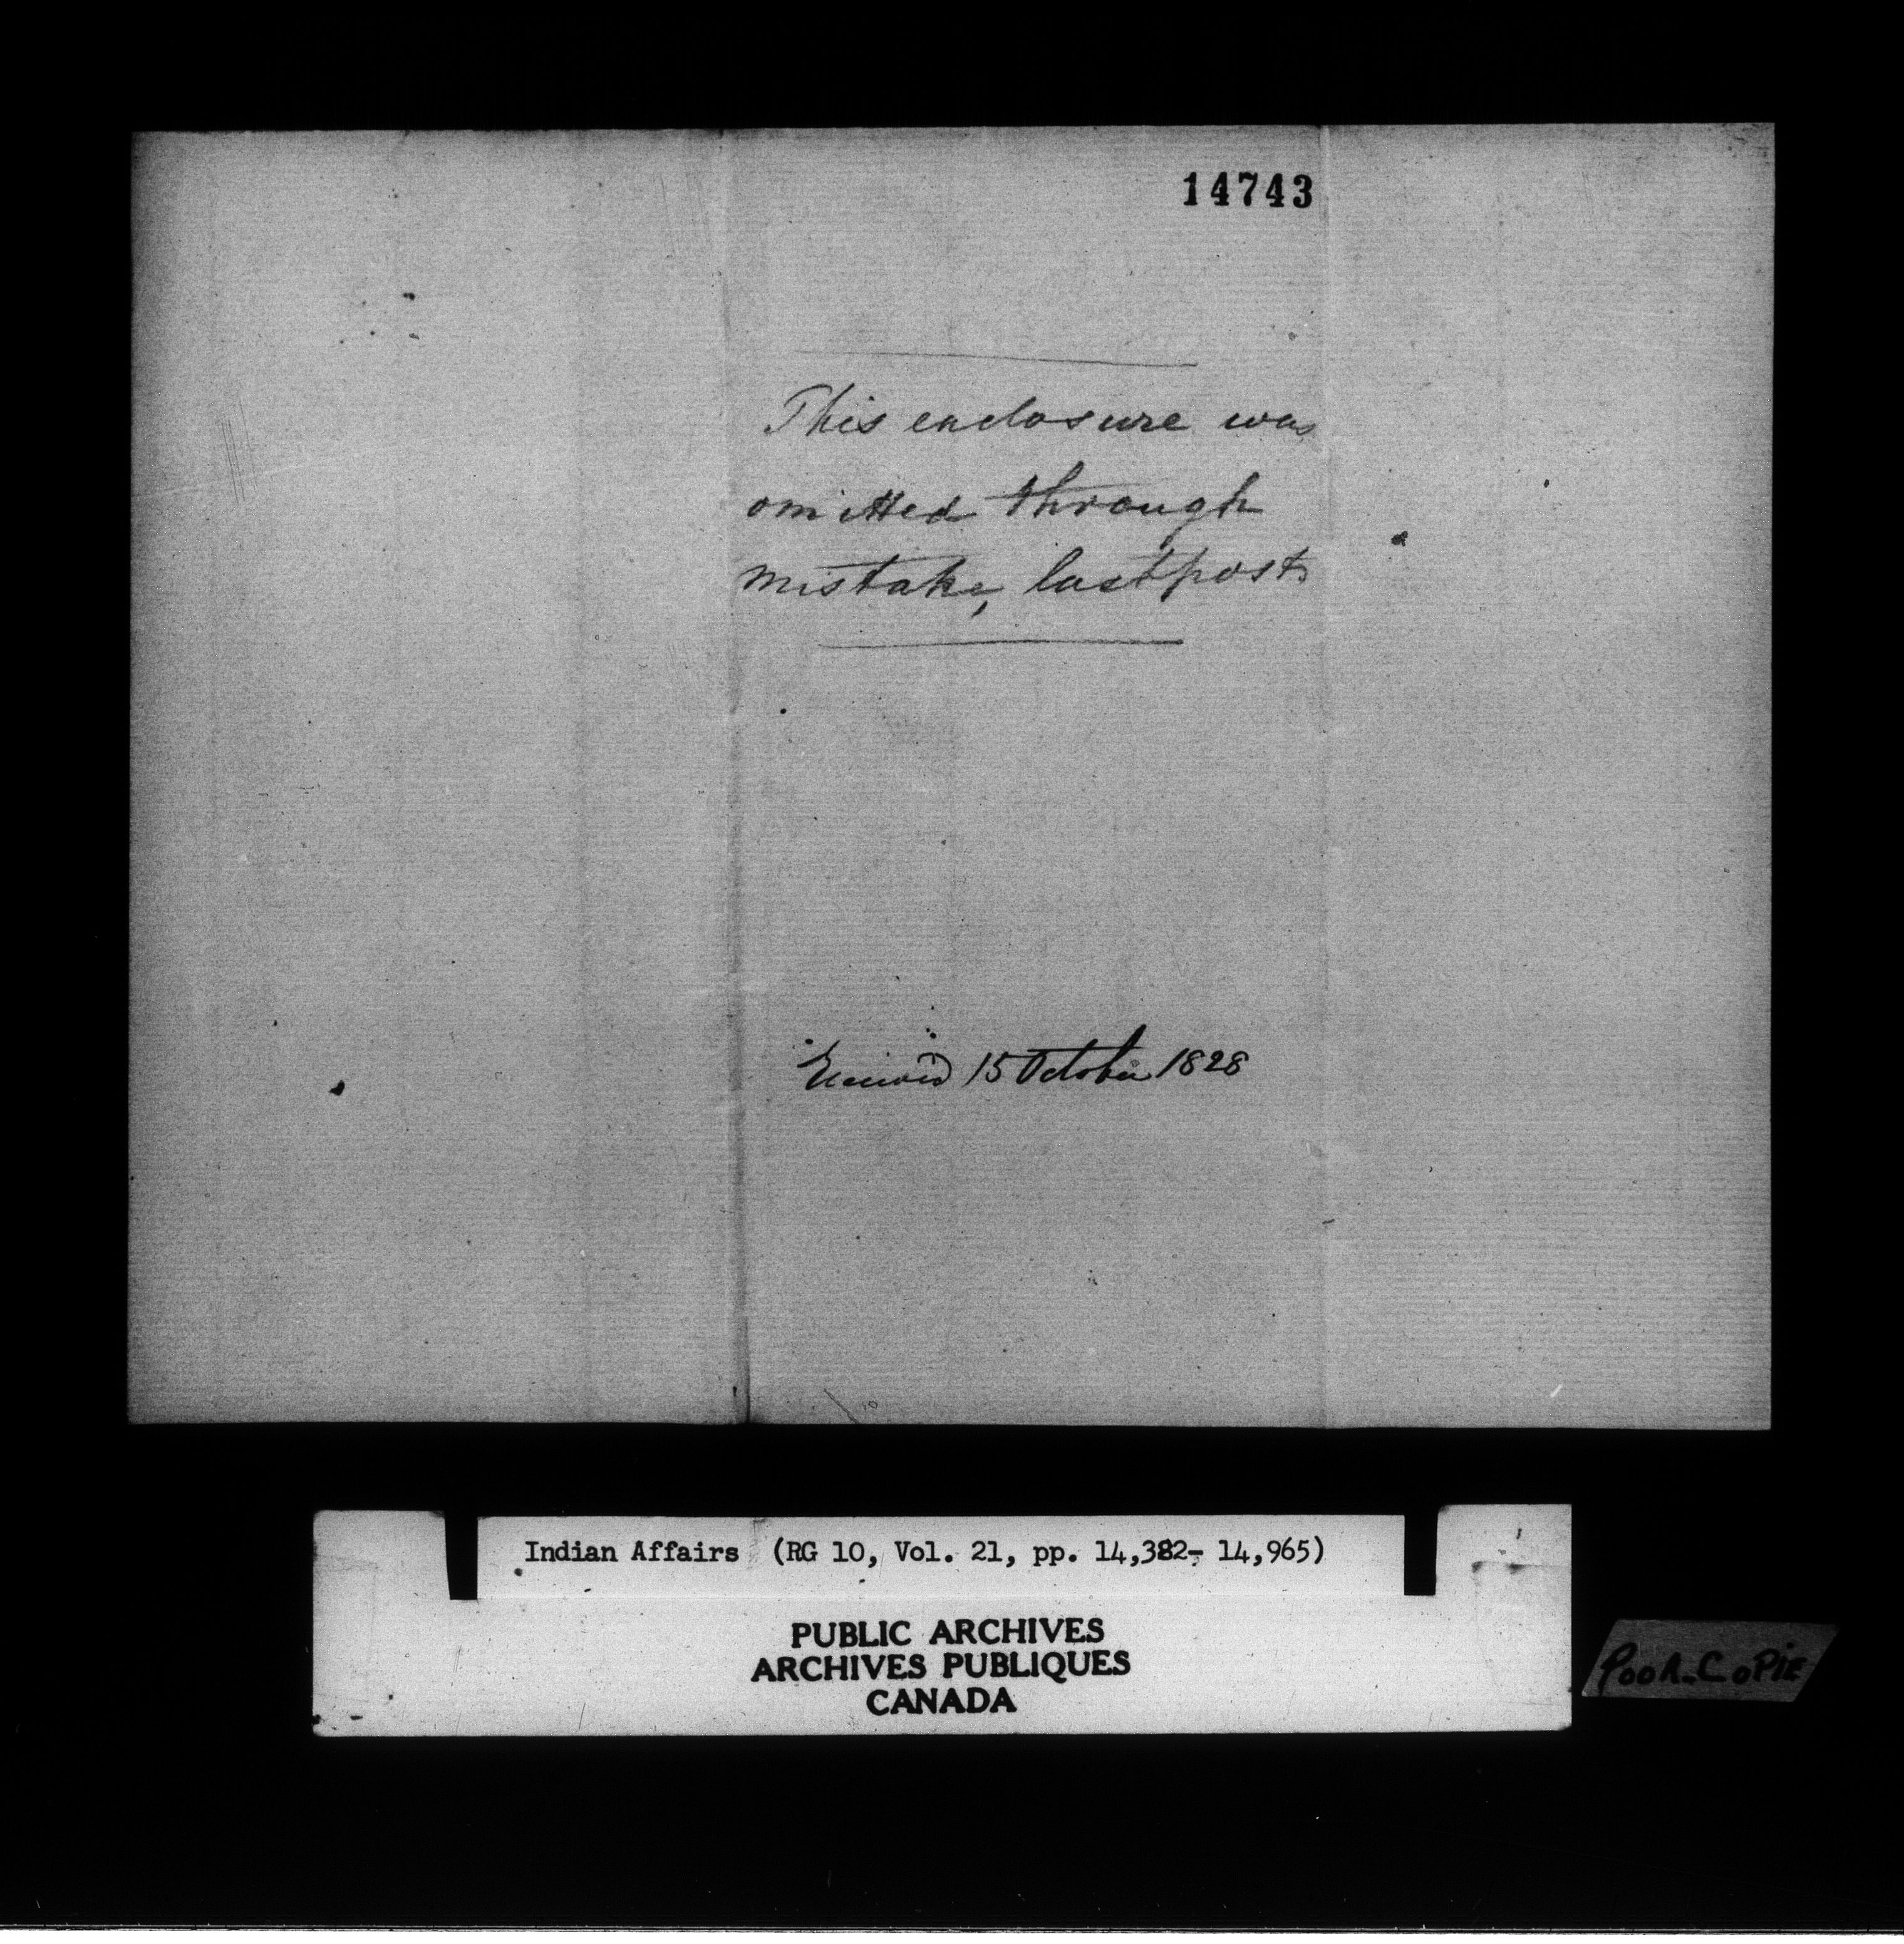 14743
This enclosure was
omitted through
mistake, last post
Received 15 October 1828
Indian Affairs (RG 10, Vol. 21, pp. 14,382- 14,965)
PUBLIC ARCHIVES
ARCHIVES PUBLIQUES
CANADA
POOR COPIE